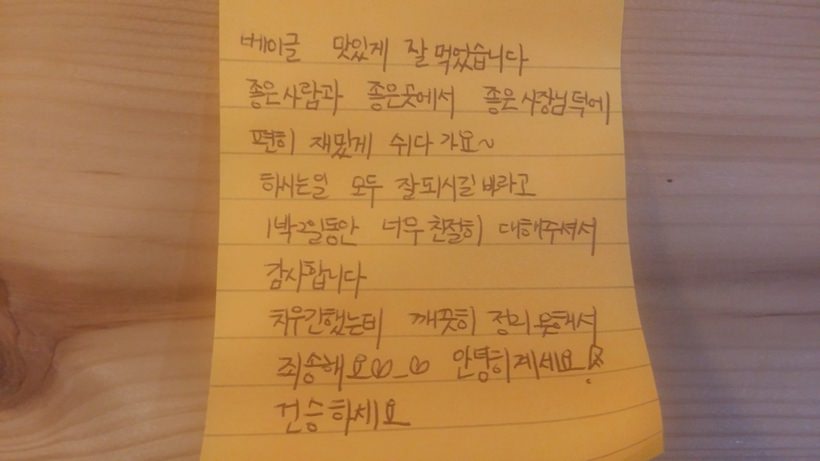 베이글 맛있게 잘 먹었습니다
좋은사람과 좋은곳에서 좋은사장님덕에
편히 재밌게 쉬다 가요~
하시는일 모두 잘되시길 바라고
1박2일동안 너무 친절히 대해주셔서
감사합니다
치우긴했는데 깨끗히 정리못해서
죄송해요ㅠ_ㅠ 안녕히계세요!
건승하세요